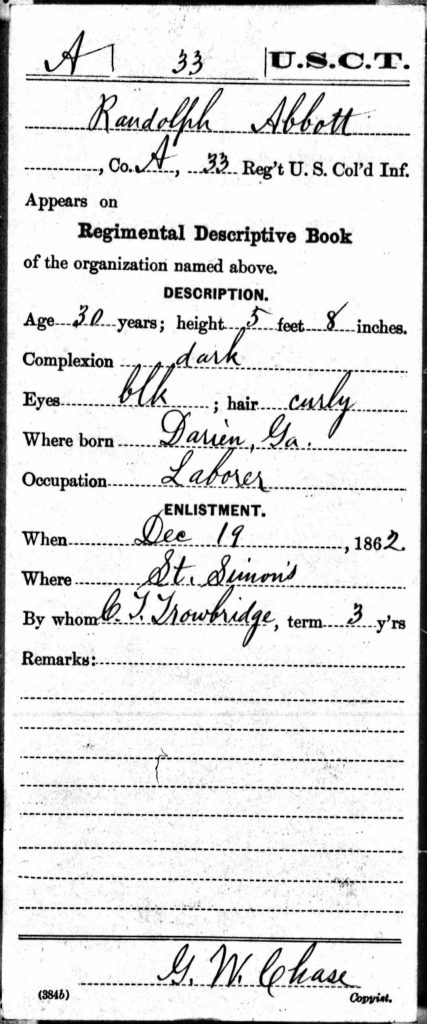 A 33 U.S.C.T.
Randolph Abbott
, Co. A, 33 Reg't U. S. Col'd Inf.
Appears on
Regimental Descriptive Book
of the organization named above.
DESCRIPTION.
Age 30 years; height 5 feet 8 inches.
Complexion dark
Eyes blk ; hair curly
Where born Darien, Ga.
Occupation Laborer
ENLISTMENT.
When Dec 19, 1862.
Where St. Simon's
By whom C. T. Trowbridge, term 3 y'rs
Remarks:
G. W. Chase
(384b) Copyist.